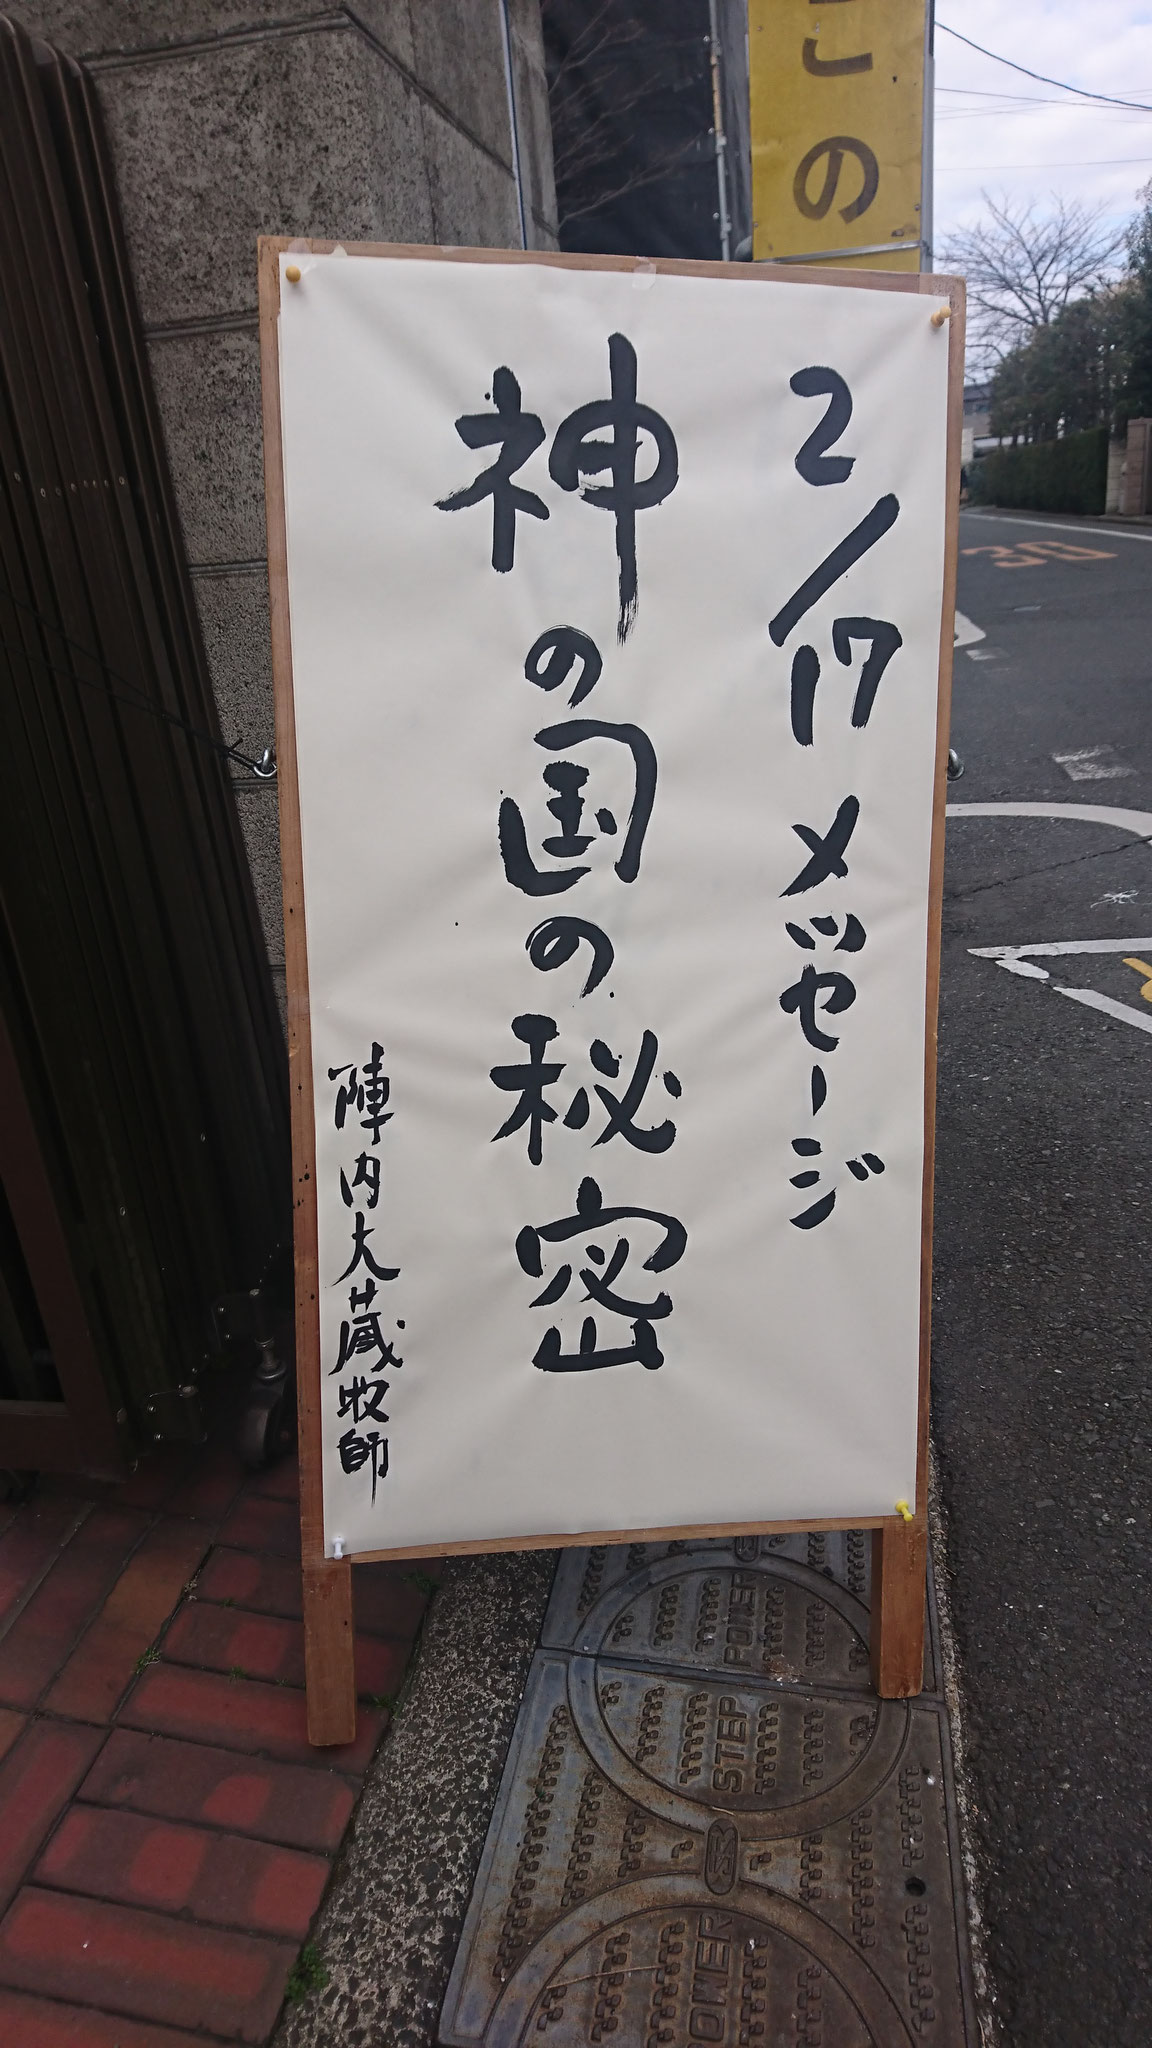 2/17 メッセージ
神の国の秘密
陣内大蔵牧師
この
30
STEP POWER
POWER